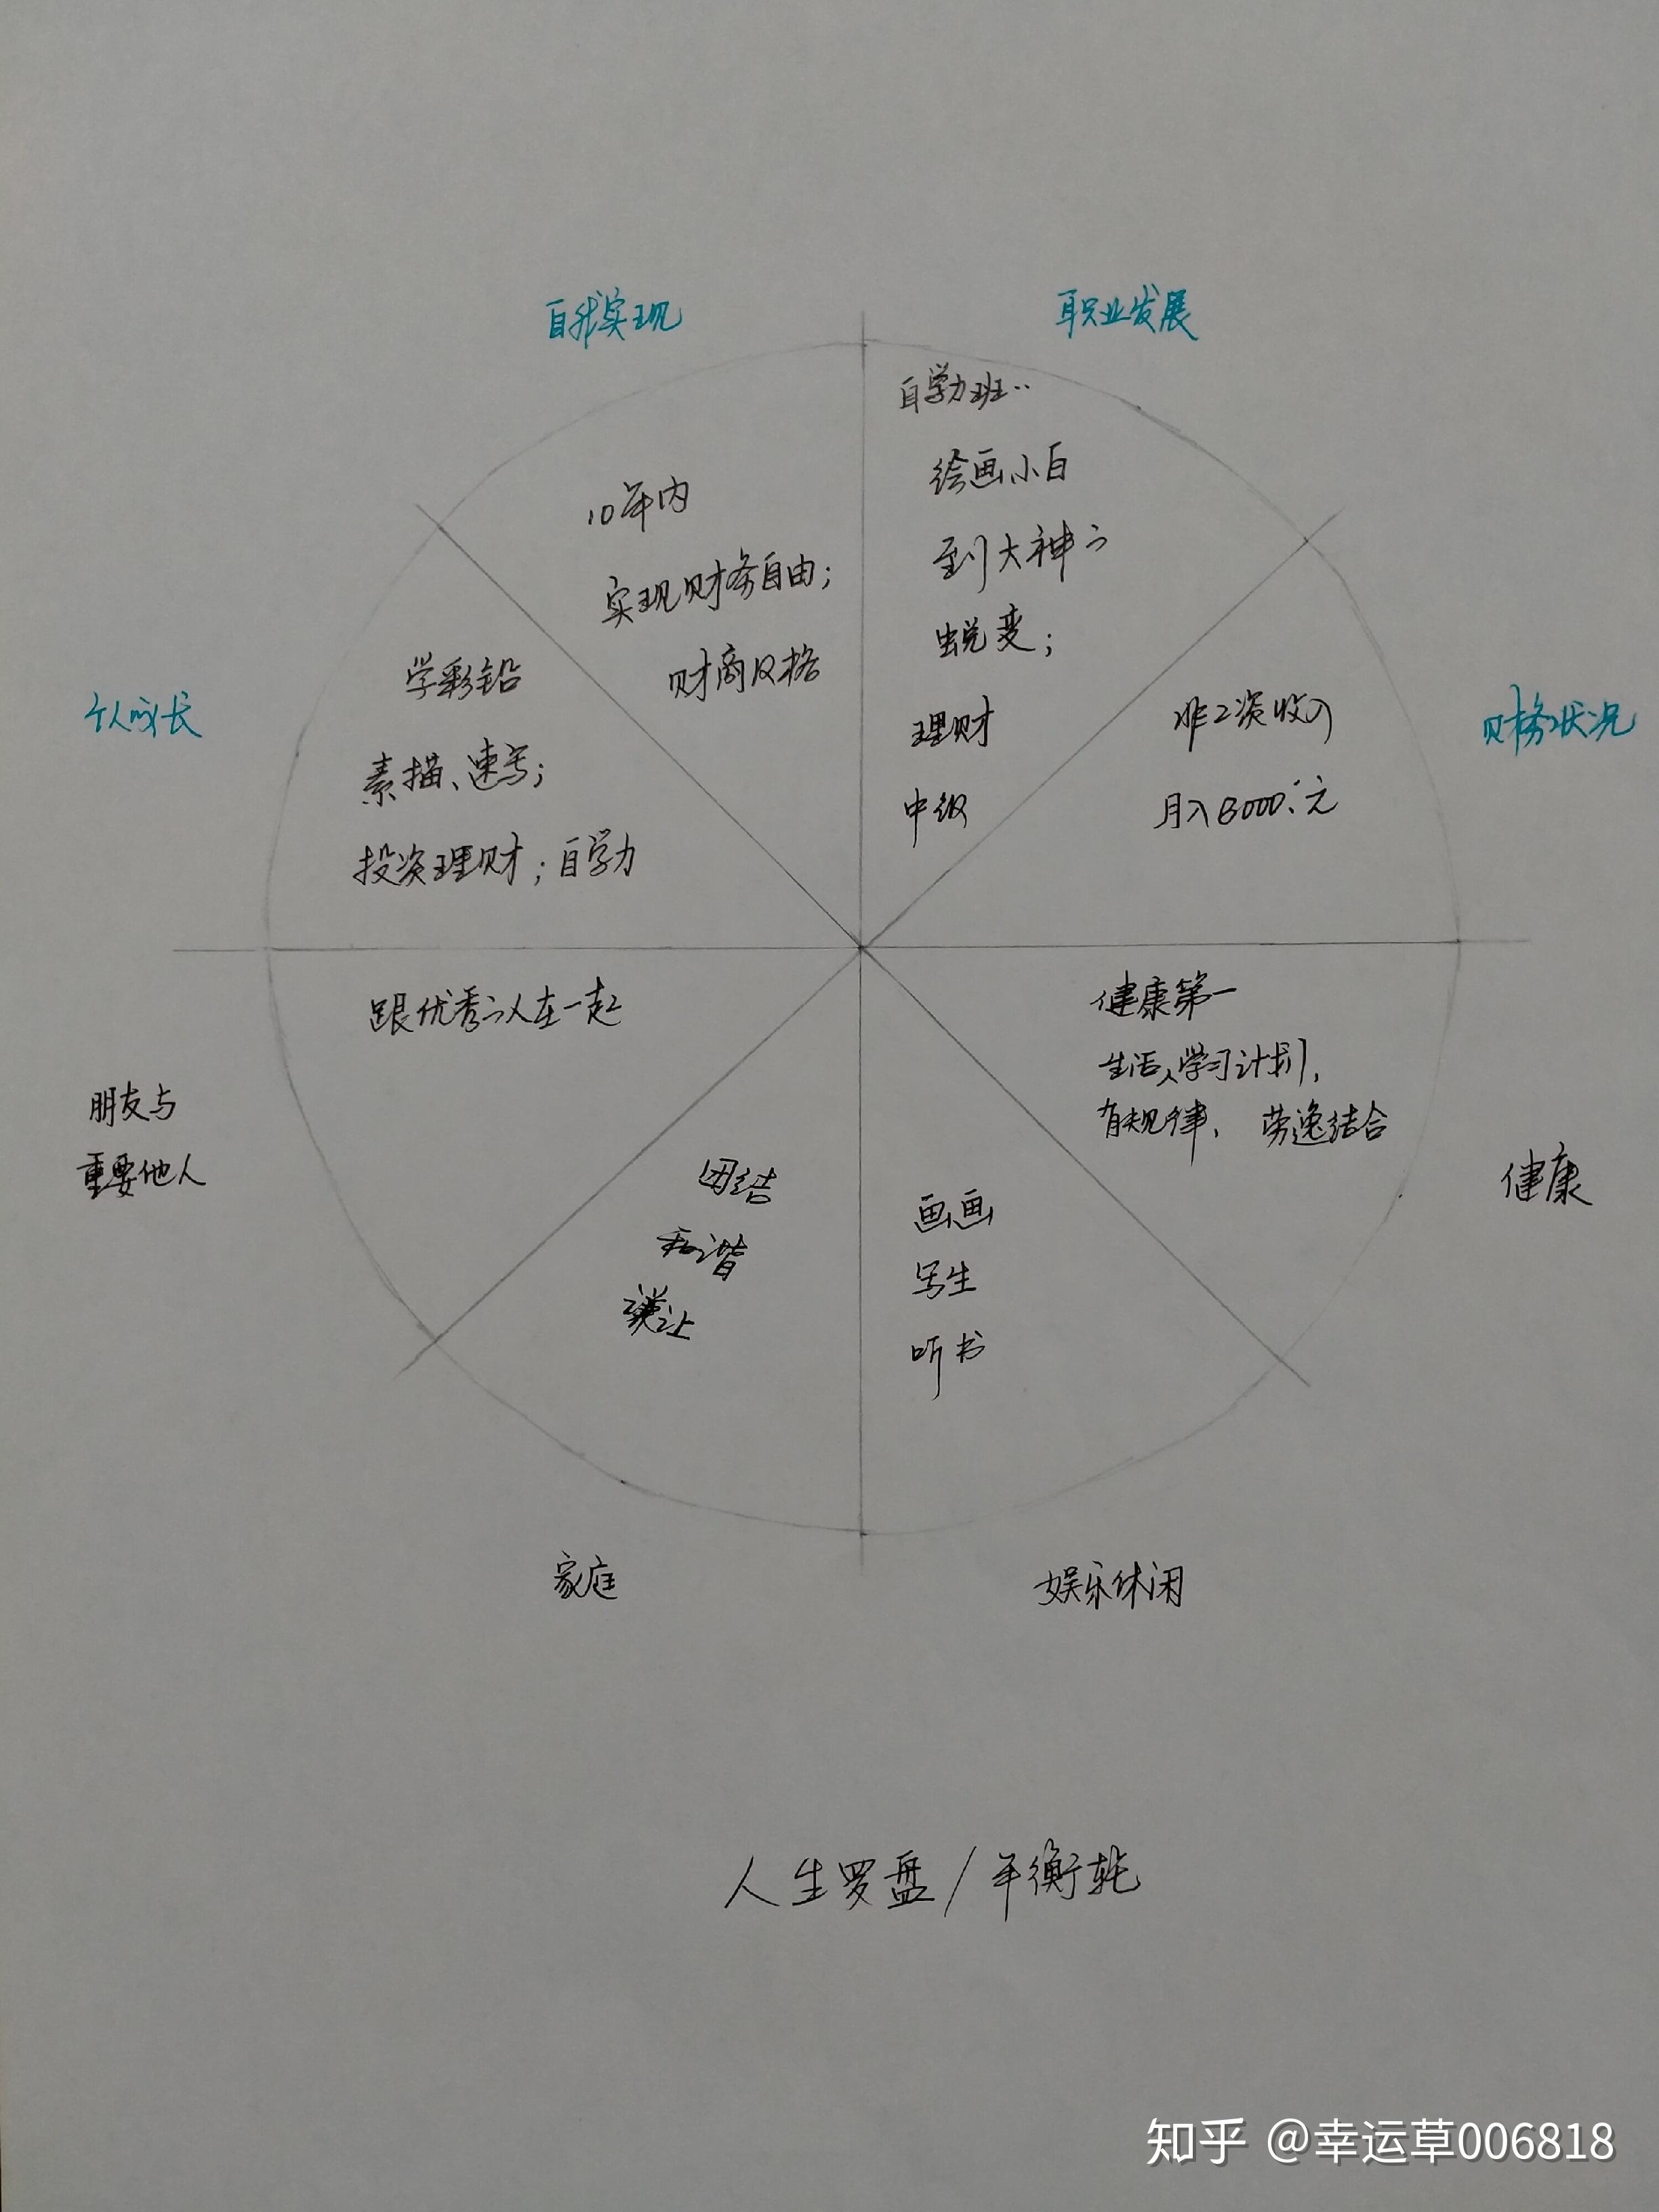 自我实现
职业发展
自学力班..
绘画小白
到大神的
蜕变；
理财
中级
10年内
实现财务自由；
财商风格
学彩铅
素描、速写；
投资理财；自学力
个人成长
非工资收入
月入8000.元
财务状况
跟优秀的人在一起
朋友与
重要他人
健康第一
生活、学习计划，
有规律，劳逸结合
健康
团结
和谐
谦让
画画
写生
听书
家庭
娱乐休闲
人生罗盘/平衡轮
知乎 @幸运草006818